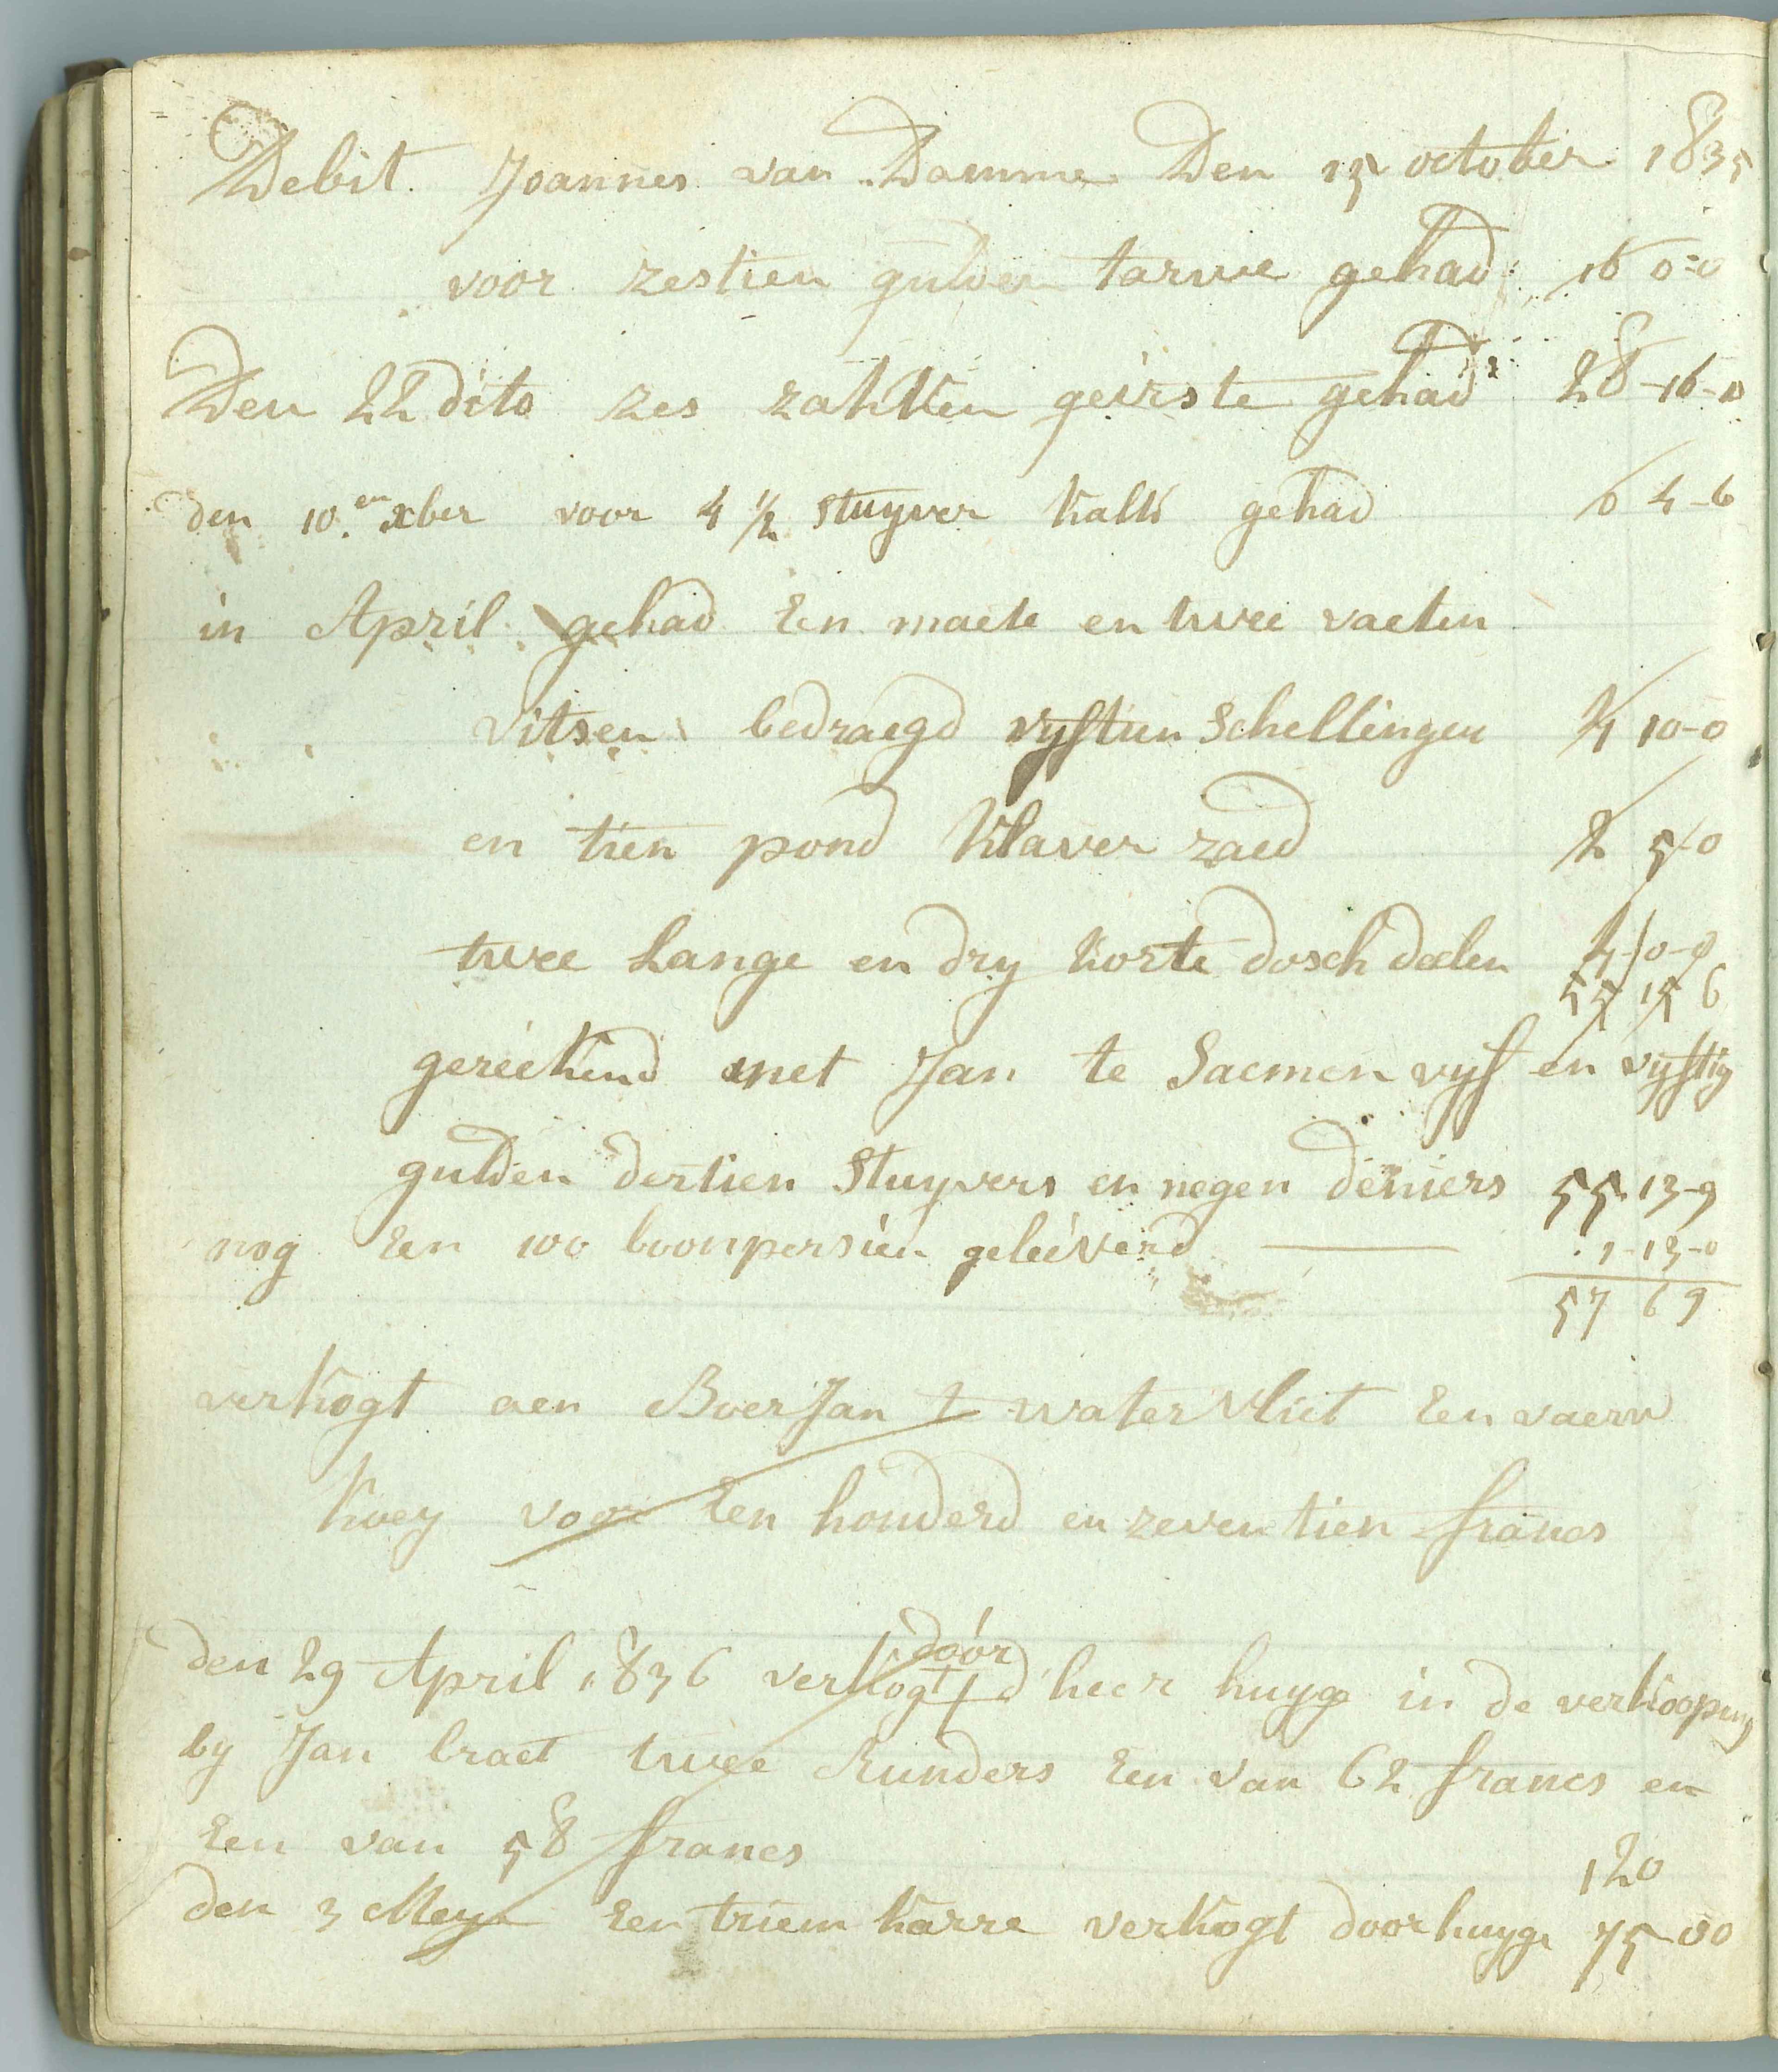 Debit Joannes van Damme Den 15 october 1835
voor zestien gulden tarwe gehad 16 0-0
Den 22 dito zes zakken geirste gehad 28-16-0
den 10.en xber voor 4 1/2 stuyver kalk gehad 0 4-6
in April gehad Een maete en twee vaeten
vitsen bedraegd vyftien Schellingen 4 10-0
en tien pond klaver zaed 2 5-0
twee Lange en dry korte dosch deelen 4-0-0
55 15 6
gereekend met Jan te Saemen vyf en vyftig
gulden dertien Stuyvers en negen deniers 55-13-9
nog Een 100 boonpersien geleeverd 1-13-0
57 6 9
verkogt aen Boer Jan t watervliet Een vaerw
koey voor Een honderd en zeventien francs
door
den 29 April 1836 verkogt d heer huyge in de verkooping
by Jan braet twee Runders Een van 62 francs en
Een van 58 francs 120
den 3 Mey Een triem karre verkogt door huyge 75-00